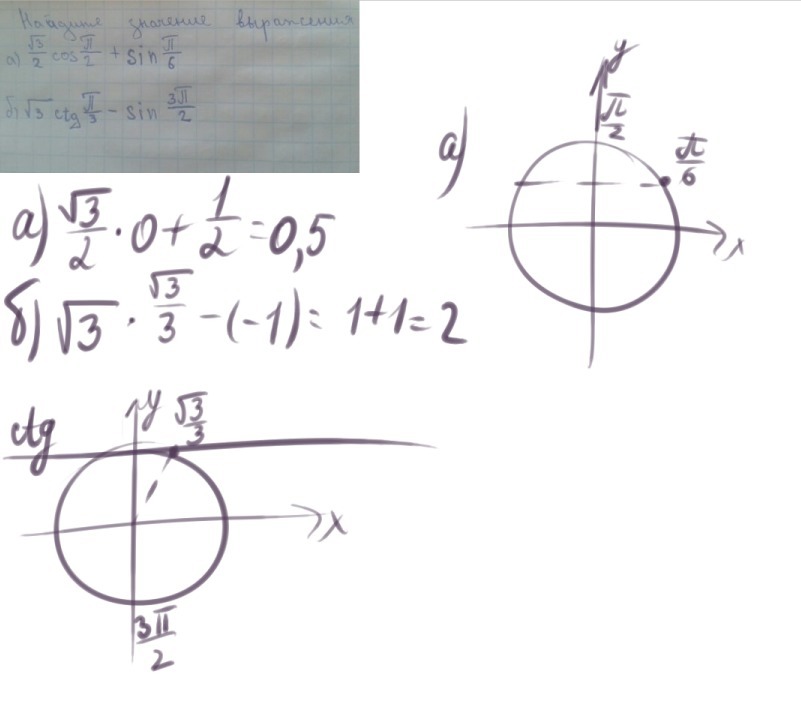 Найдите значение выражения
а) √3/2 cos π/2 + sin π/6
б) √3 ctg π/3 − sin 3π/2
а) √3/2 · 0 + 1/2 = 0,5
б) √3 · √3/3 − (−1) = 1+1=2
а)
y
π/2
π/6
x
ctg
y
√3/3
x
3π/2